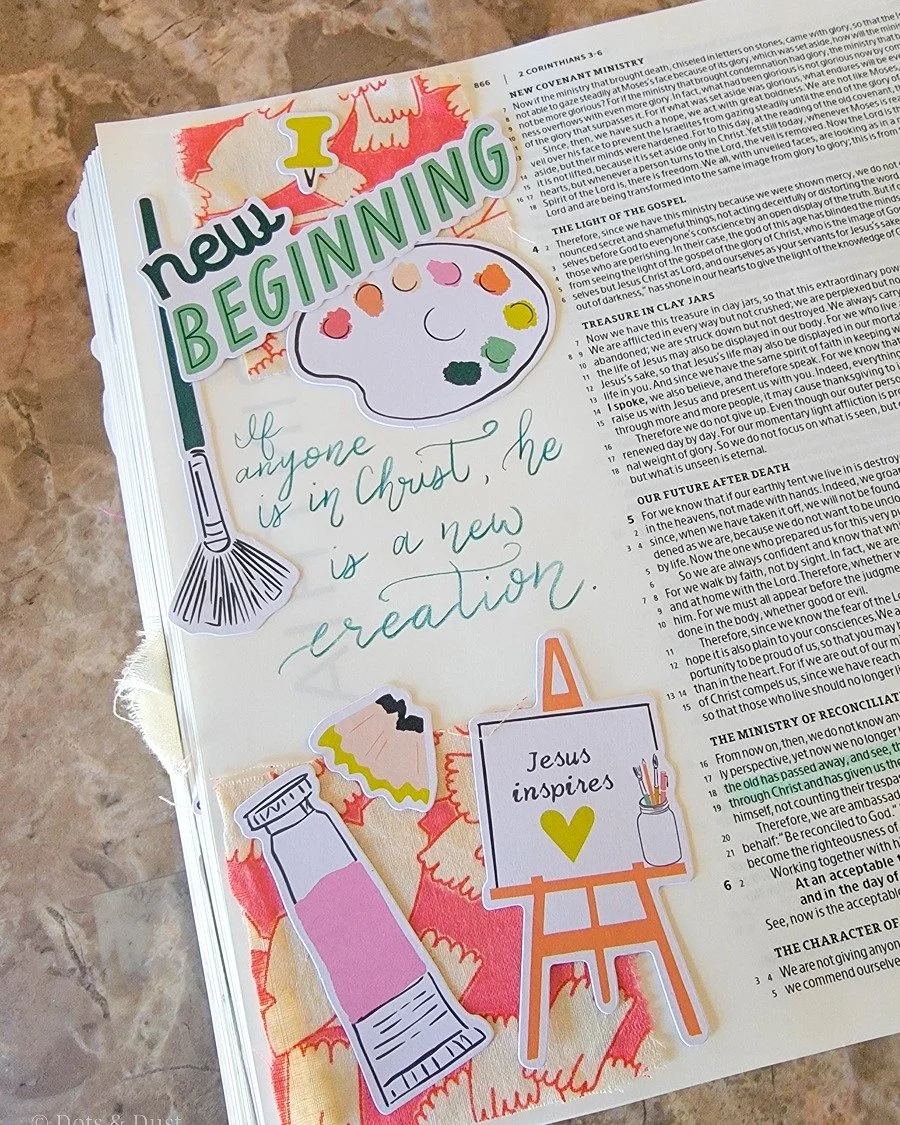 new
BEGINNING
If
anyone
is in Christ, he
is a new
creation.
Jesus
inspires
866 | 2 CORINTHIANS 3-6
NEW COVENANT MINISTRY
7 Now if the ministry that brought death, chiseled in letters on stones, came with glory, so that the
not able to gaze steadily at Moses's face because of its glory, which was set aside, how will the
not be more glorious? For if the ministry that brought condemnation had glory, the ministry that
ness overflows with even more glory. In fact, what had been glorious is not glorious now by
of the glory that surpasses it. For if what was set aside was glorious, what endures will be
Since, then, we have such a hope, we act with great boldness. We are not like Moses,
veil over his face to prevent the Israelites from gazing steadily until the end of the glory of
aside, but their minds were hardened. For to this day, at the reading of the old covenant,
it is not lifted, because it is set aside only in Christ. Yet still today, whenever Moses is
hearts, but whenever a person turns to the Lord, the veil is removed. Now the Lord is
Spirit of the Lord is, there is freedom. We all, with unveiled faces, are looking as in a
18 Lord and are being transformed into the same image from glory to glory; this is from
THE LIGHT OF THE GOSPEL
4 2 Therefore, since we have this ministry because we were shown mercy, we do not
nounced secret and shameful things, not acting deceitfully or distorting the word
3 selves before God to everyone's conscience by an open display of the truth. But if
4 those who are perishing. In their case, the god of this age has blinded the minds
5 from seeing the light of the gospel of the glory of Christ, who is the image of God
6 selves but Jesus Christ as Lord, and ourselves as your servants for Jesus's sake.
out of darkness," has shone in our hearts to give the light of the knowledge of
TREASURE IN CLAY JARS
7 Now we have this treasure in clay jars, so that this extraordinary pow
8 9 We are afflicted in every way but not crushed; we are perplexed but not
10 abandoned; we are struck down but not destroyed. We always carry
11 the life of Jesus may also be displayed in our body. For we who live
12 Jesus's sake, so that Jesus's life may also be displayed in our mortal
13 life in you. And since we have the same spirit of faith in keeping w
14 I spoke, we also believe, and therefore speak. For we know that
15 raise us with Jesus and present us with you. Indeed, everything
through more and more people, it may cause thanksgiving to
16 Therefore we do not give up. Even though our outer person
17 renewed day by day. For our momentary light affliction is
18 nal weight of glory. So we do not focus on what is seen, but
but what is unseen is eternal.
OUR FUTURE AFTER DEATH
5 For we know that if our earthly tent we live in is destroy
2 in the heavens, not made with hands. Indeed, we groan
3 4 since, when we have taken it off, we will not be found
dened as we are, because we do not want to be unclo
5 by life. Now the one who prepared us for this very
6 So we are always confident and know that
7 8 For we walk by faith, not by sight. In fact, we are
9 and at home with the Lord. Therefore, whether
10 him. For we must all appear before the judgme
done in the body, whether good or evil.
11 Therefore, since we know the fear of the Lo
12 hope it is also plain to your consciences. We a
portunity to be proud of us, so that you may
13 14 than in the heart. For if we are out of our mi
15 of Christ compels us, since we have reach
so that those who live should no longer
THE MINISTRY OF RECONCILIA
16 From now on, then, we do not know any
17 ly perspective, yet now we no longer
18 the old has passed away, and see, th
19 through Christ and has given us the
himself, not counting their trespa
20 Therefore, we are ambassad
21 behalf: "Be reconciled to God."
become the righteousness of
6 2 Working together with
At an acceptable
and in the day of
See, now is the acceptable
THE CHARACTER OF
3 4 We are not giving anyon
5 we commend ourselve
© Dots & Dust